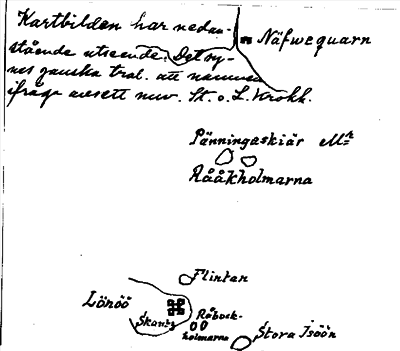 Kartbilden har nedan-
stående utseende. Det sy-
nes ganska trol. att namnen
ifråga avsett nuv. St. o L. Krokh.
Näfwequarn
Pänningaskiär M:r
Rååkholmarna
Flintan
Lönöö
Skantz
Råbock-
holmarna
Stora Isöön